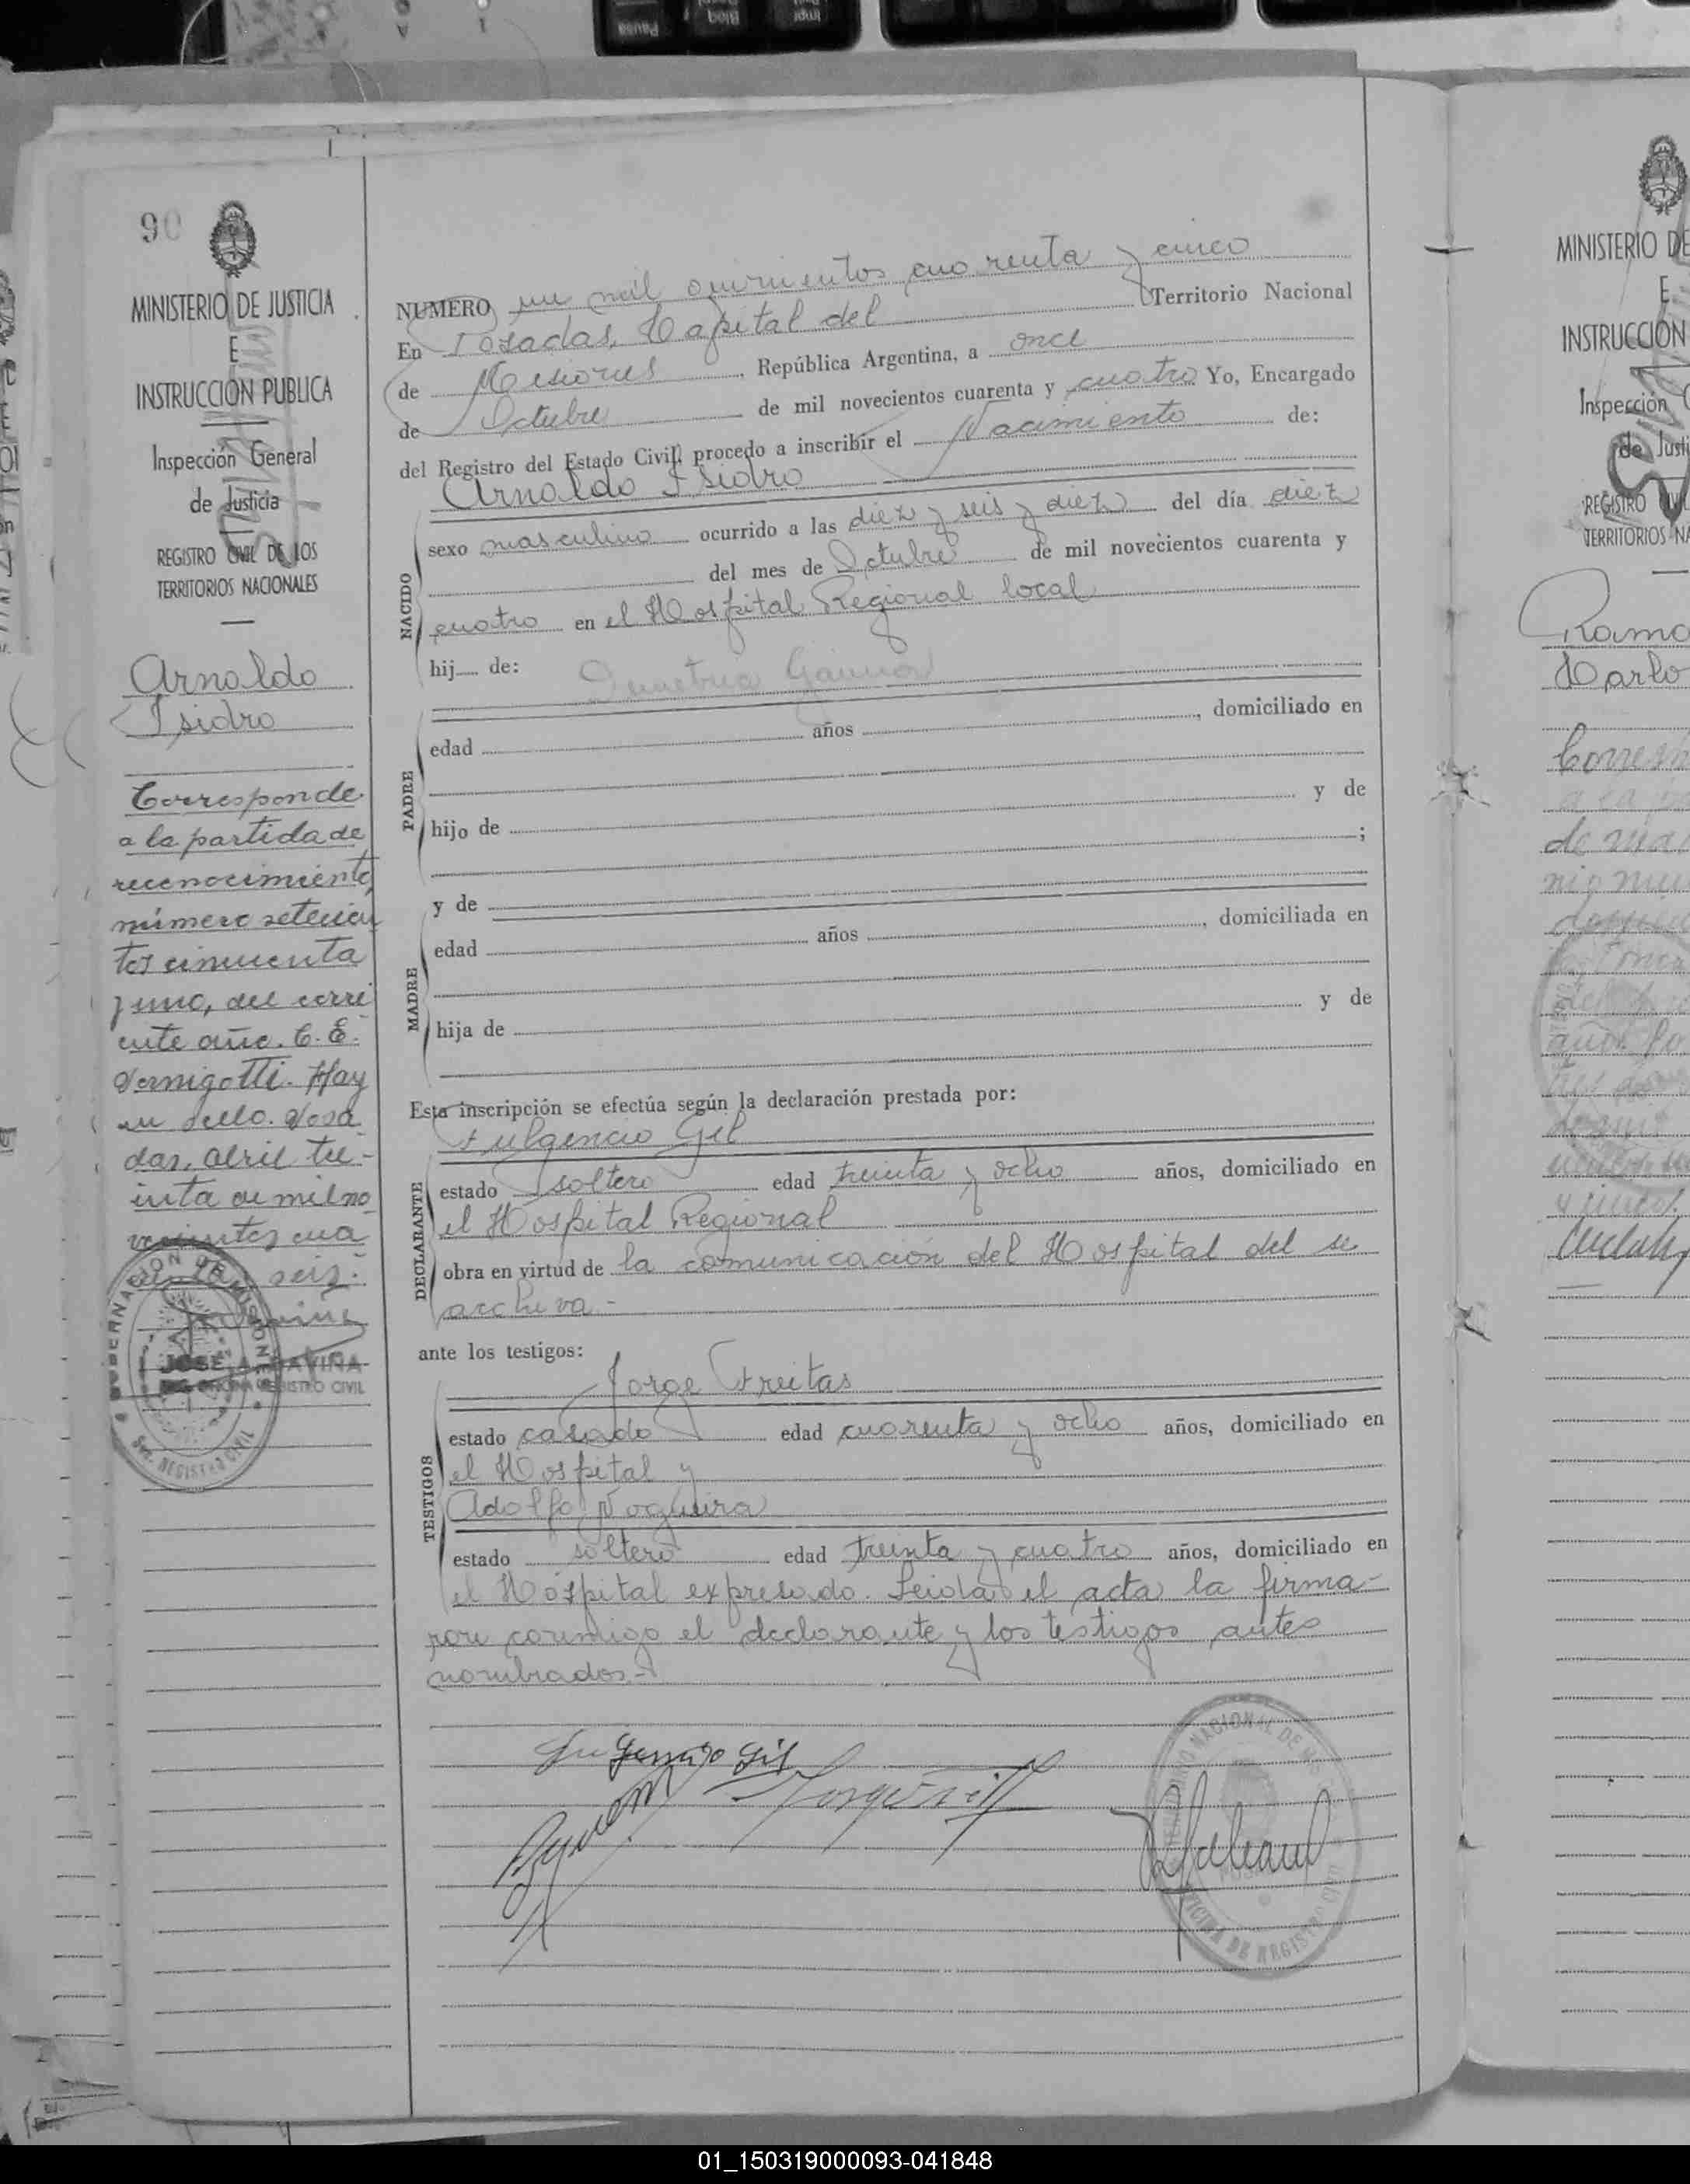 90
MINISTERIO DE JUSTICIA
E
INSTRUCCION PUBLICA
Inspección General
de Justicia
REGISTRO CIVIL DE LOS
TERRITORIOS NACIONALES
Arnoldo
Isidro
Corresponde
a la partida de
reconocimiento,
número setecien
tos cincuenta
y uno, del corri
ente año. C. E.
Vernigotti. Hay
un sello. Posa
das, abril tre-
inta de mil no
vecientos cua
renta y seis.
GOBERNACION DE MISIONES
JOSE A. GAVIÑA
REGISTRO CIVIL
NUMERO un mil quinientos cuarenta y cinco
En Posadas, Capital del Territorio Nacional
de Misiones, República Argentina, a once
de Octubre de mil novecientos cuarenta y cuatro Yo, Encargado
del Registro del Estado Civil, procedo a inscribir el Nacimiento de:
Arnoldo Isidro
NACIDO
sexo masculino ocurrido a las diez y seis y diez del día diez
del mes de Octubre de mil novecientos cuarenta y
cuatro en el Hospital Regional local
hij de: Demetria
PADRE
edad años, domiciliado en
hijo de y de
;
y de
MADRE
edad años, domiciliada en
hija de y de
Esta inscripción se efectúa según la declaración prestada por:
Fulgencio Gil
DECLARANTE
estado soltero edad treinta y ocho años, domiciliado en
el Hospital Regional
obra en virtud de la comunicación del Hospital del se
archiva -
ante los testigos:
Jorge Freitas
TESTIGOS
estado casado edad cuarenta y ocho años, domiciliado en
el Hospital y
Adolfo Nogueira
estado soltero edad treinta y cuatro años, domiciliado en
el Hospital expresado. Leida el acta la firma-
ron conmigo el declarante y los testigos antes
nombrados.-
Fulgencio Gil
OFICINA DE REGISTRO CIVIL
MINISTERIO DE
E
INSTRUCCION
Inspección
de Justi
REGISTRO CIVIL
TERRITORIOS NA
Ramo
Carlo
01_150319000093-041848